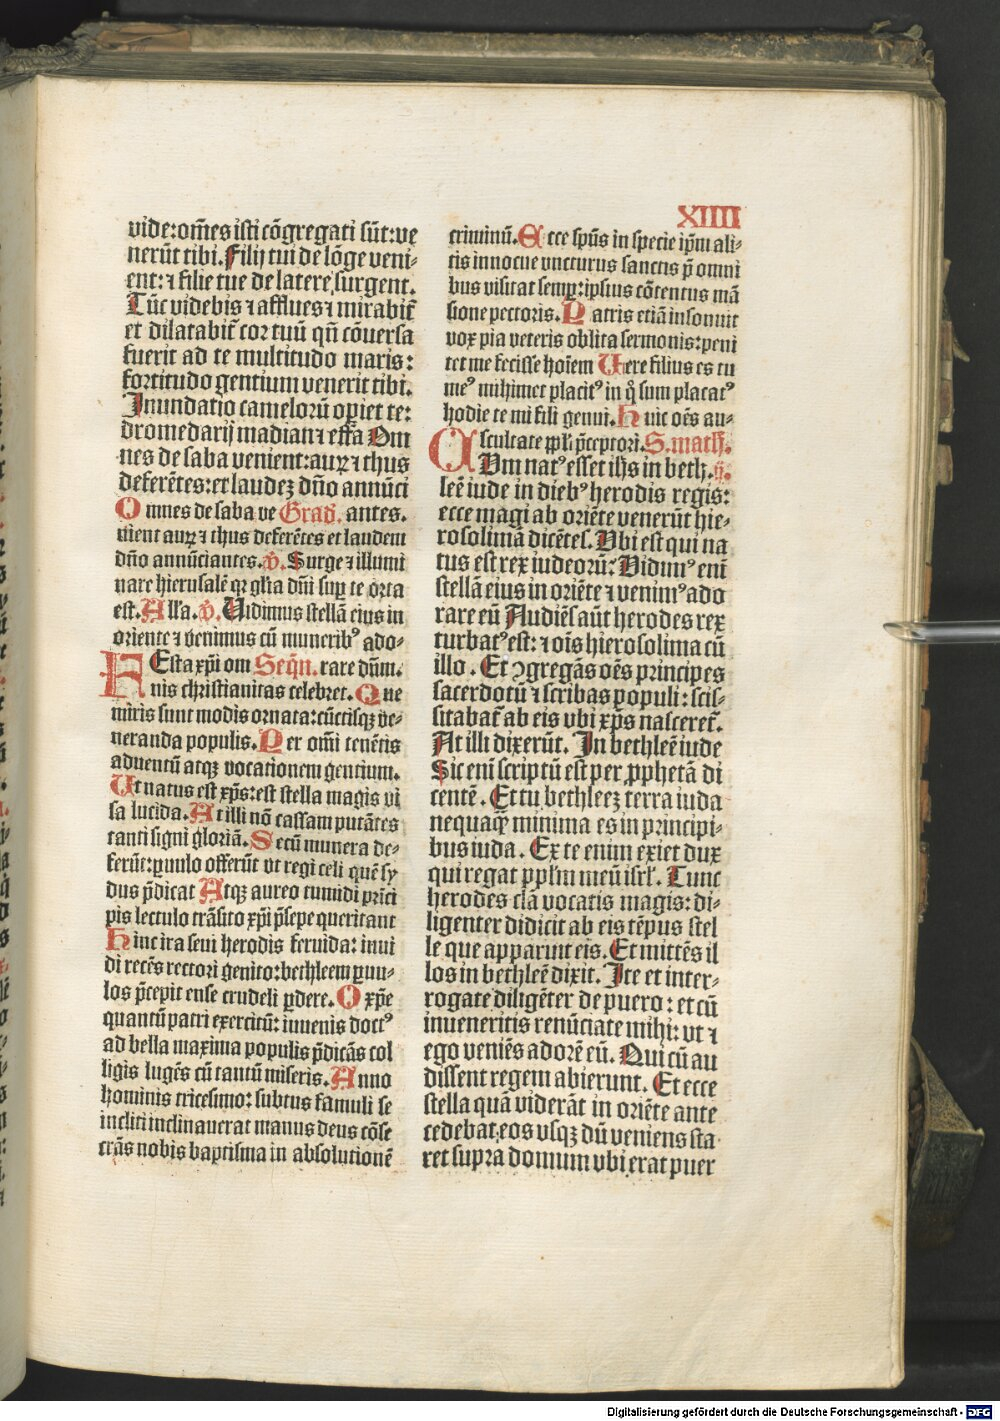 XIIII
vide:om̃es isti cõgregati sũt:ve
nerũt tibi. Filij tui de lõge veni-
ent: ⁊ filie tue de latere surgent.
Tũc videbis ⁊ afflues ⁊ mirabit̃
et dilatabit̃ cor tuũ qñ cõuersa
fuerit ad te multitudo maris:
fortitudo gentium venerit tibi.
Inundatio camelorũ op̱iet te:
dromedarij madian ⁊ effa Om
nes de saba venient:auꝝ ⁊ thus
deferẽtes:et laudeꝫ dño annũci
Omnes de saba ve Grad̃. antes.
nient auꝝ ⁊ thus deferẽtes et laudem
dño annũciantes. v̓. Surge ⁊ illumi
nare hierusalẽ qꝛ gl̃ia dñi suꝑ te orta
est. All̃a. v̓. Uidimus stellã eius in
oriente ⁊ venimus cũ munerib᷒ ado-
FEsta xp̃i om Seq̃n. rare dũm.
nis christianitas celebret. Que
miris sunt modis ornata:cũctisqꝫ ve-
neranda populis. Per om̃i tenẽtis
aduentũ atqꝫ vocationem gentium.
Ut natus est xp̃s:est stella magis vi
sa lucida. At illi nõ cassam putãtes
tanti signi gloriã. Secũ munera de-
ferũt:ꝑuulo offerũt vt regi celi quẽ sy
dus p̃dicat Atqꝫ aureo tumidi pñci
pis lectulo trãsito xp̃i p̃sepe queritant
Hinc ira seui herodis feruida: inui
di recẽs rectori genito:bethleem ꝑuu-
los p̃cepit ense crudeli ꝑdere. O xp̃e
quantũ patri exercitũ: iuuenis doct᷒
ad bella maxima populis p̃dicãs col
ligis lugẽs cũ tantũ miseris. Anno
hominis tricesimo: subtus famuli se
incliti inclinauerat manus deus cõse
crãs nobis baptisma in absolutionẽ
criminũ. Ecce sp̃us in specie ip̃m ali-
tis innocue vncturus sanctis p̃ omni
bus visitat semꝑ:ipsius cõtentus mã
sione pectoris. Patris etiã insonuit
vox pia veteris oblita sermonis:peni
tet me fecisse hoĩem Uere filius es tu
me᷒ mihimet placit᷒ in q̃ sum placat᷒
hodie te mi fili genui. Huic oẽs au-
scultate ppl̃i p̃ceptori. S. math̃.
CUm nat᷒ esset ih̃s in beth. ij.
leẽ iude in dieb᷒ herodis regis:
ecce magi ab oriẽte venerũt hie-
rosolimã dicẽtes. Ubi est qui na
tus est rex iudeorũ: Uidim᷒ eni
stellã eius in oriẽte ⁊ venim᷒ ado
rare eũ Audiẽs aũt herodes rex
turbat᷒ est: ⁊ oĩs hierosolima cũ
illo. Et ꝯgregãs oẽs principes
sacerdotũ ⁊ scribas populi: scis-
sitabat̃ ab eis vbi xp̃s nasceret̃.
At illi dixerũt. In bethleẽ iude
Sic eni scriptũ est per ꝓphetã di
centẽ. Et tu bethleeꝫ terra iuda
nequaq̃ minima es in principi-
bus iuda. Ex te enim exiet dux
qui regat ppl̃m meũ isrl̃. Tunc
herodes clã vocatis magis: di-
ligenter didicit ab eis tẽpus stel
le que apparuit eis. Et mittẽs il
los in bethleẽ dixit. Ite et inter-
rogate diligẽter de puero: et cũ
inueneritis renũciate mihi: vt ⁊
ego veniẽs adorẽ eũ. Qui cũ au
dissent regem abierunt. Et ecce
stella quã viderãt in oriẽte ante
cedebat eos vsqꝫ dũ veniens sta-
ret supra domum vbi erat puer
Digitalisierung gefördert durch die Deutsche Forschungsgemeinschaft - DFG